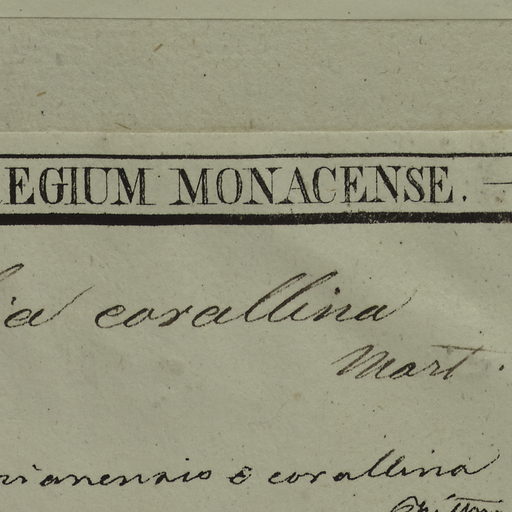 REGIUM MONACENSE.
ia corallina
Mart.
rianensis δ corallina